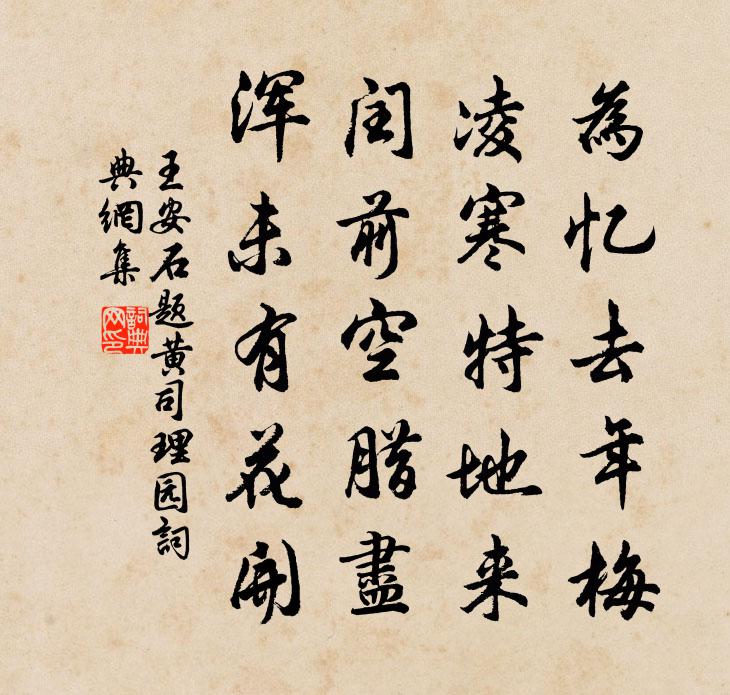 為忆去年梅
凌寒特地来
闰前空腊盡
浑未有花開
王安石题黄司理园詞
典網集
詞典
网印